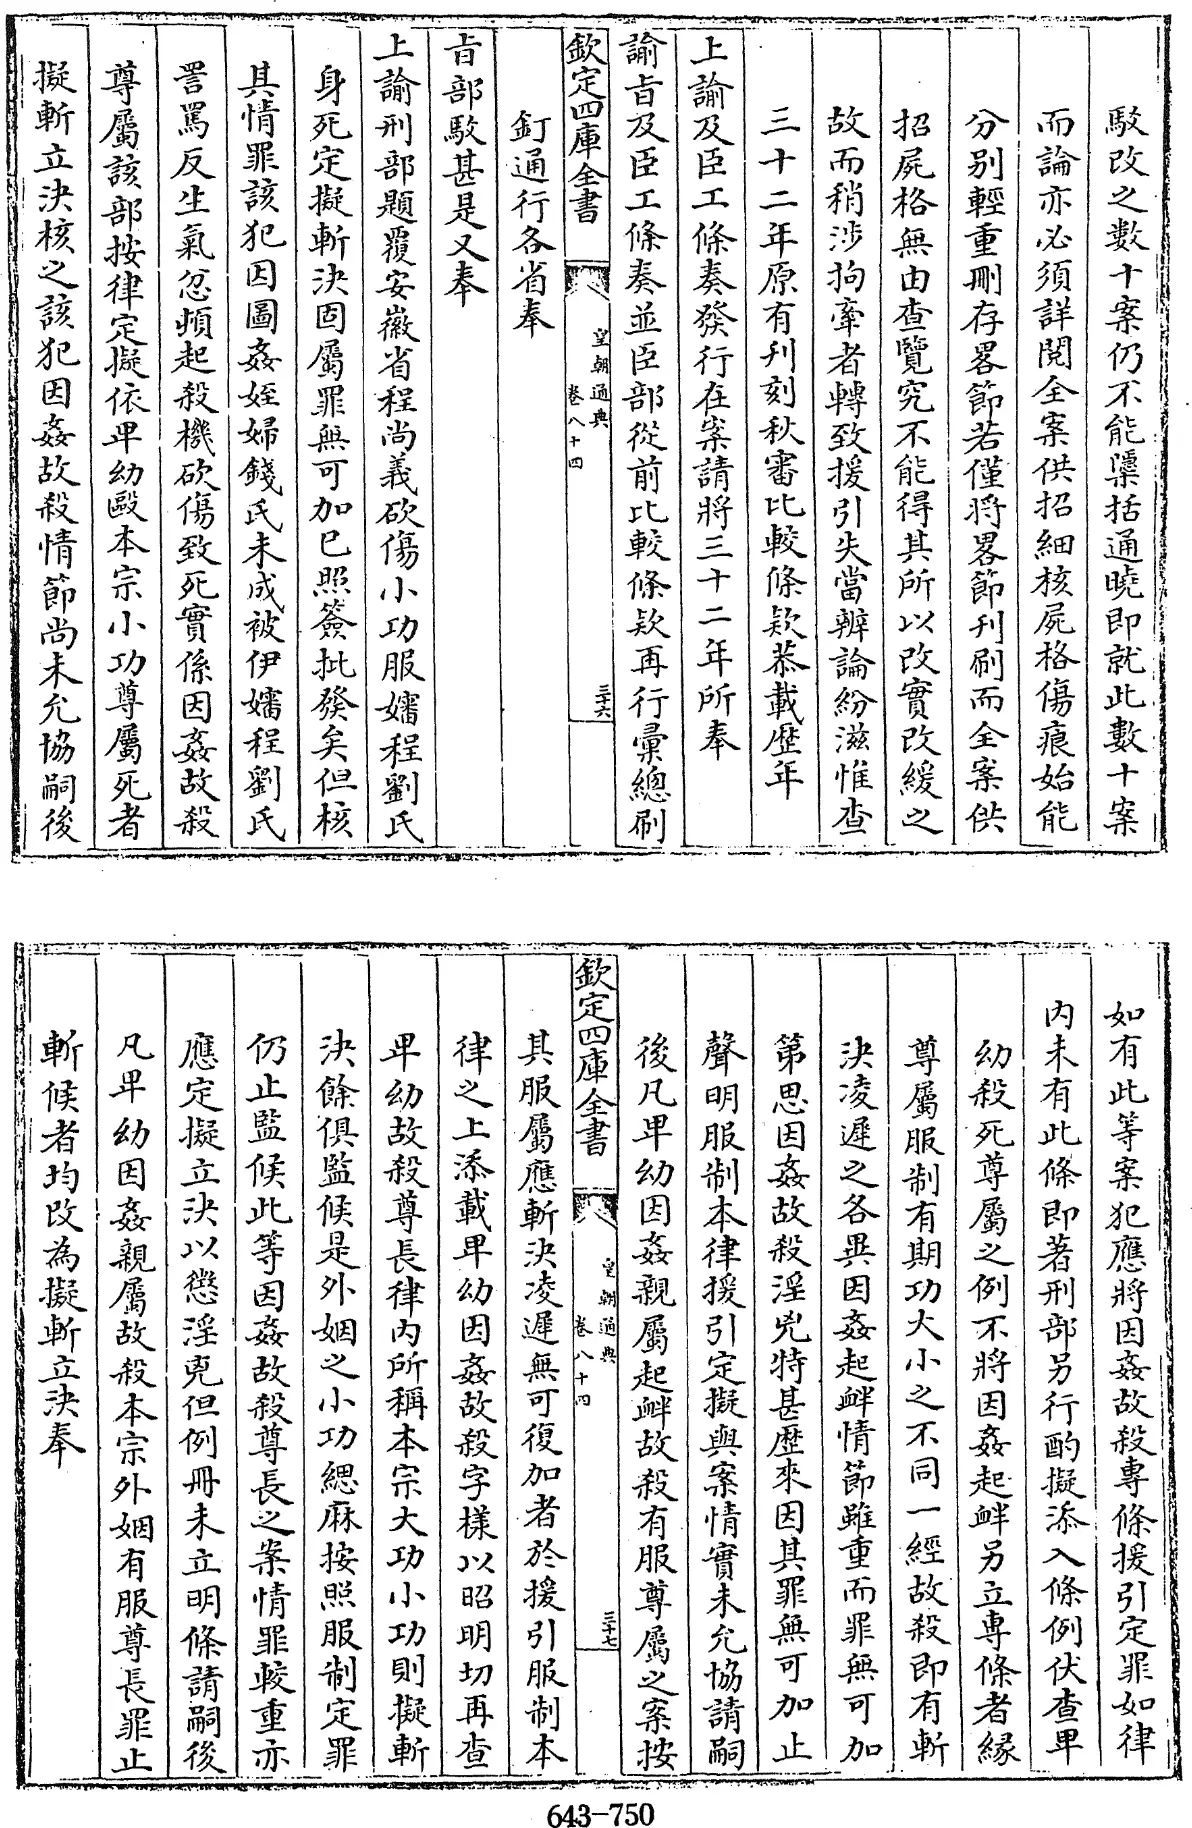 駁改之數十案仍不能檃括通曉即就此數十案
而論亦必須詳閱全案供招細核屍格傷痕始能
分别輕重刪存畧節若僅將畧節刋刷而全案供
招屍格無由查覽究不能得其所以改實改緩之
故而稍涉拘牽者轉致援引失當辨論紛滋惟查
三十二年原有刋刻秋審比較條欵恭載歴年
上諭及臣工條奏發行在案請將三十二年所奉
諭旨及臣工條奏並臣部從前比較條欵再行彙總刷
欽定四庫全書
皇朝通典
卷八十四
三十六
釘通行各省奉
旨部駁甚是又奉
上諭刑部題覆安徽省程尚義砍傷小功服嬸程劉氏
身死定擬斬決固屬罪無可加已照簽批發矣但核
其情罪該犯因圖姦姪婦錢氏未成被伊嬸程劉氏
詈罵反生氣忿頓起殺機砍傷致死實係因姦故殺
尊屬該部按律定擬依卑幼毆本宗小功尊屬死者
擬斬立決核之該犯因姦故殺情節尚未允協嗣後
如有此等案犯應將因姦故殺專條援引定罪如律
内未有此條即著刑部另行酌擬添入條例伏查卑
幼殺死尊屬之例不將因姦起衅另立專條者緣
尊屬服制有期功大小之不同一經故殺即有斬
決凌遲之各異因姦起衅情節雖重而罪無可加
第思因姦故殺淫兇特甚歴來因其罪無可加止
聲明服制本律援引定擬與案情實未允協請嗣
後凡卑幼因姦親屬起衅故殺有服尊屬之案按
欽定四庫全書
皇朝通典
卷八十四
三十七
其服屬應斬決凌遲無可復加者於援引服制本
律之上添載卑幼因姦故殺字様以昭明切再查
卑幼故殺尊長律内所稱本宗大功小功則擬斬
決餘俱監候是外姻之小功緦麻按照服制定罪
仍止監候此等因姦故殺尊長之案情罪較重亦
應定擬立決以懲淫兇但例冊未立明條請嗣後
凡卑幼因姦親屬故殺本宗外姻有服尊長罪止
斬候者均改為擬斬立決奉
643-750